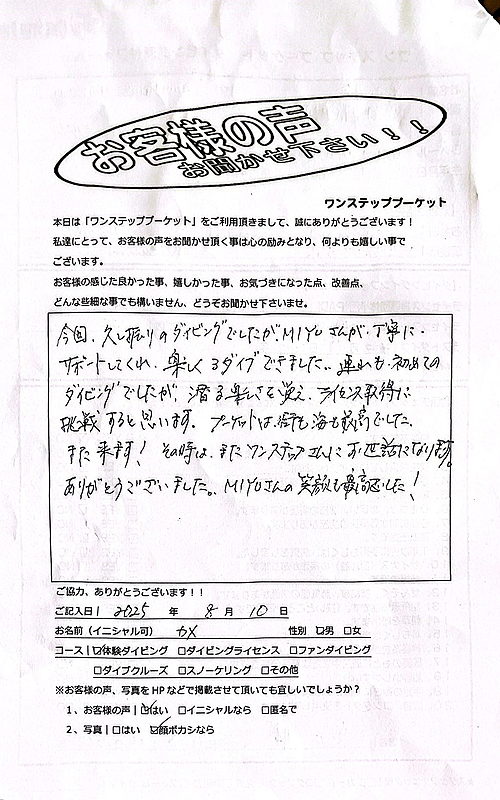 お客様の声
お聞かせ下さい！！
ワンステッププーケット
本日は「ワンステッププーケット」をご利用頂きまして、誠にありがとうございます！
私達にとって、お客様の声をお聞かせ頂く事は心の励みとなり、何よりも嬉しい事で
ございます。
お客様の感じた良かった事、嬉しかった事、お気づきになった点、改善点、
どんな些細な事でも構いません、どうぞお聞かせ下さいませ。
今回、久し振りのダイビングでしたが、MIYUさんが、丁寧に、
サポートしてくれ、楽しく3ダイブできました。連れも、初めての
ダイビングでしたが、潜る楽しさを覚え、ライセンス取得に
挑戦すると思います。プーケットは、街も海も最高でした。
また来ます！ その時は、またワンステップさんにお世話になります。
ありがとうございました。MIYUさんの笑顔も最高でした！
ご協力、ありがとうございます！！
ご記入日| 2025 年 8 月 10 日
お名前（イニシャル可） 性別 ☑男 □女
コース| ☑体験ダイビング □ダイビングライセンス □ファンダイビング
□ダイブクルーズ □スノーケリング □その他
※お客様の声、写真をHPなどで掲載させて頂いても宜しいでしょうか？
1、お客様の声 | ☑はい □イニシャルなら □匿名で
2、写真 | □はい ☑顔ボカシなら